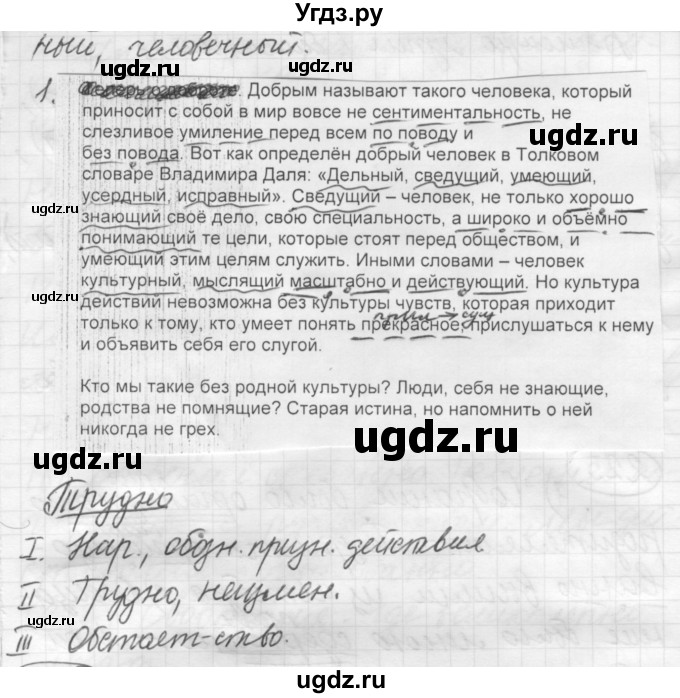 Угдз.ру
ный, человечный.
gdz.ru
gdz.ru
1. Теперь о доброте. Добрым называют такого человека, который
приносит с собой в мир вовсе не сентиментальность, не
слезливое умиление перед всем по поводу и
без повода. Вот как определён добрый человек в Толковом
словаре Владимира Даля: «Дельный, сведущий, умеющий,
усердный, исправный». Сведущий – человек, не только хорошо
знающий своё дело, свою специальность, а широко и объёмно
понимающий те цели, которые стоят перед обществом, и
умеющий этим целям служить. Иными словами – человек
культурный, мыслящий масштабно и действующий. Но культура
действий невозможна без культуры чувств, которая приходит
только к тому, кто умеет понять прекрасное, прислушаться к нему
и объявить себя его слугой.
Кто мы такие без родной культуры? Люди, себя не знающие,
родства не помнящие? Старая истина, но напомнить о ней
никогда не грех.
gdz.ru
gdz.ru
gdz.ru
gdz.ru
gdz.ru
Трудно
I. Нар., обозн. призн. действия
II Трудно, неизмен.
III Обстоят-ство.
gdz.ru
gdz.ru
gdz.ru
gdz.ru